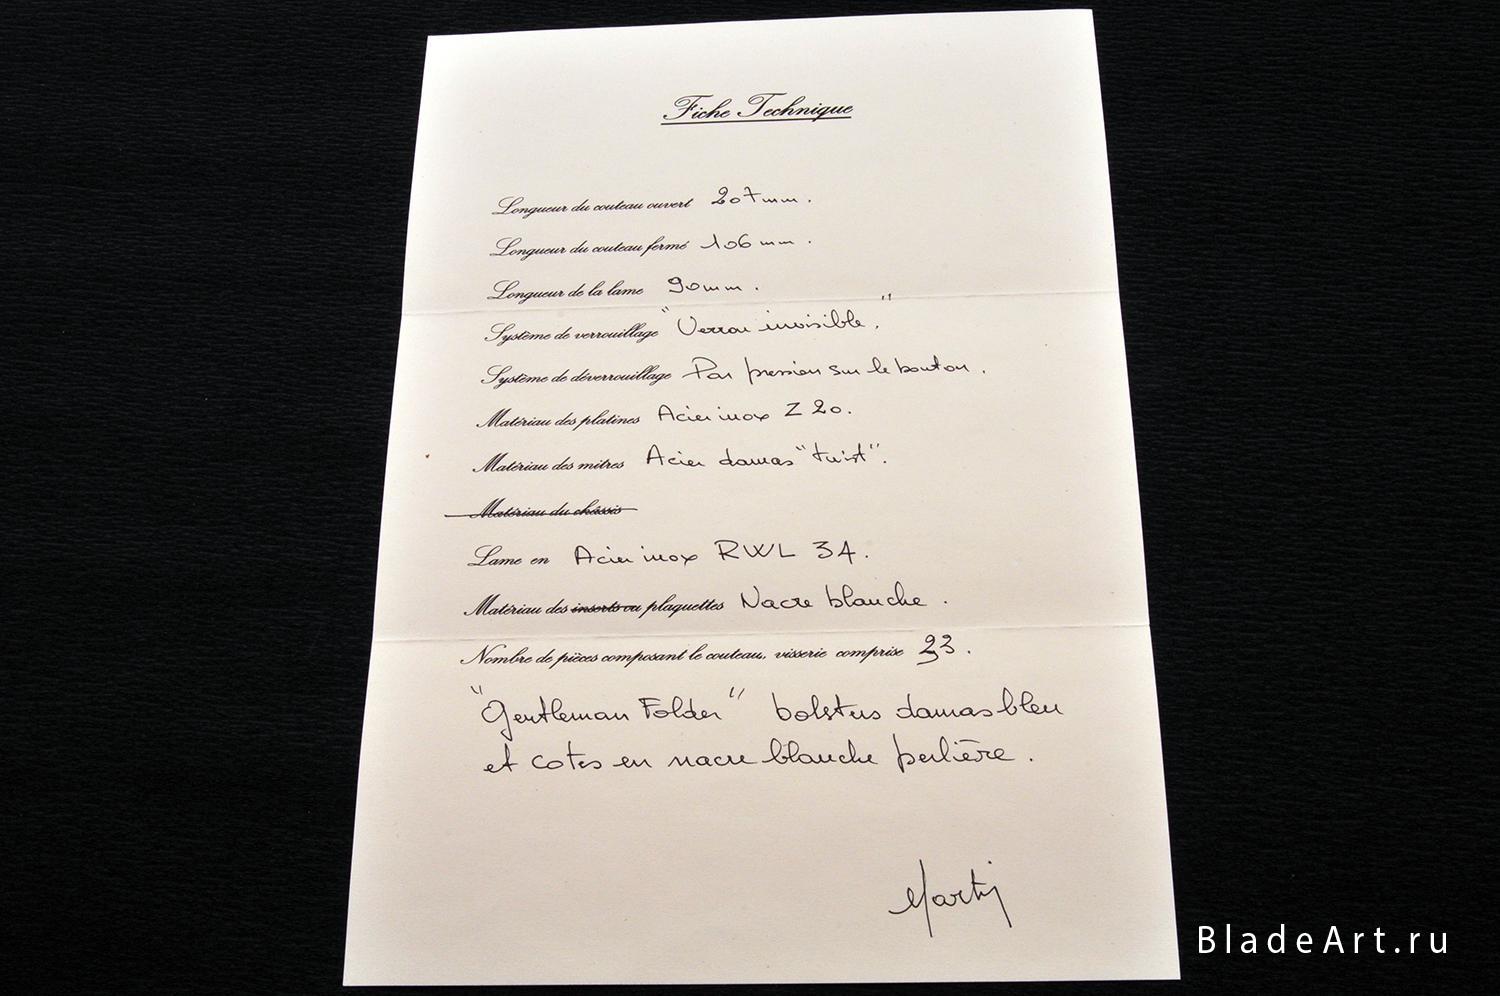 Fiche Technique
Longueur du couteau ouvert 207 mm.
Longueur du couteau fermé 106 mm.
Longueur de la lame 90 mm.
Système de verrouillage "Verrou invisible."
Système de déverrouillage Par pression sur le bouton.
Matériau des platines Acier inox Z 20.
Matériau des mitres Acier damas "twist".
Matériau du châssis
Lame en Acier inox RWL 34.
Matériau des inserts ou plaquettes Nacre blanche.
Nombre de pièces composant le couteau, visserie comprise 23.
"Gentleman Folder" bolsters damas bleu
et cotes en nacre blanche perlière.
Martin
BladeArt.ru